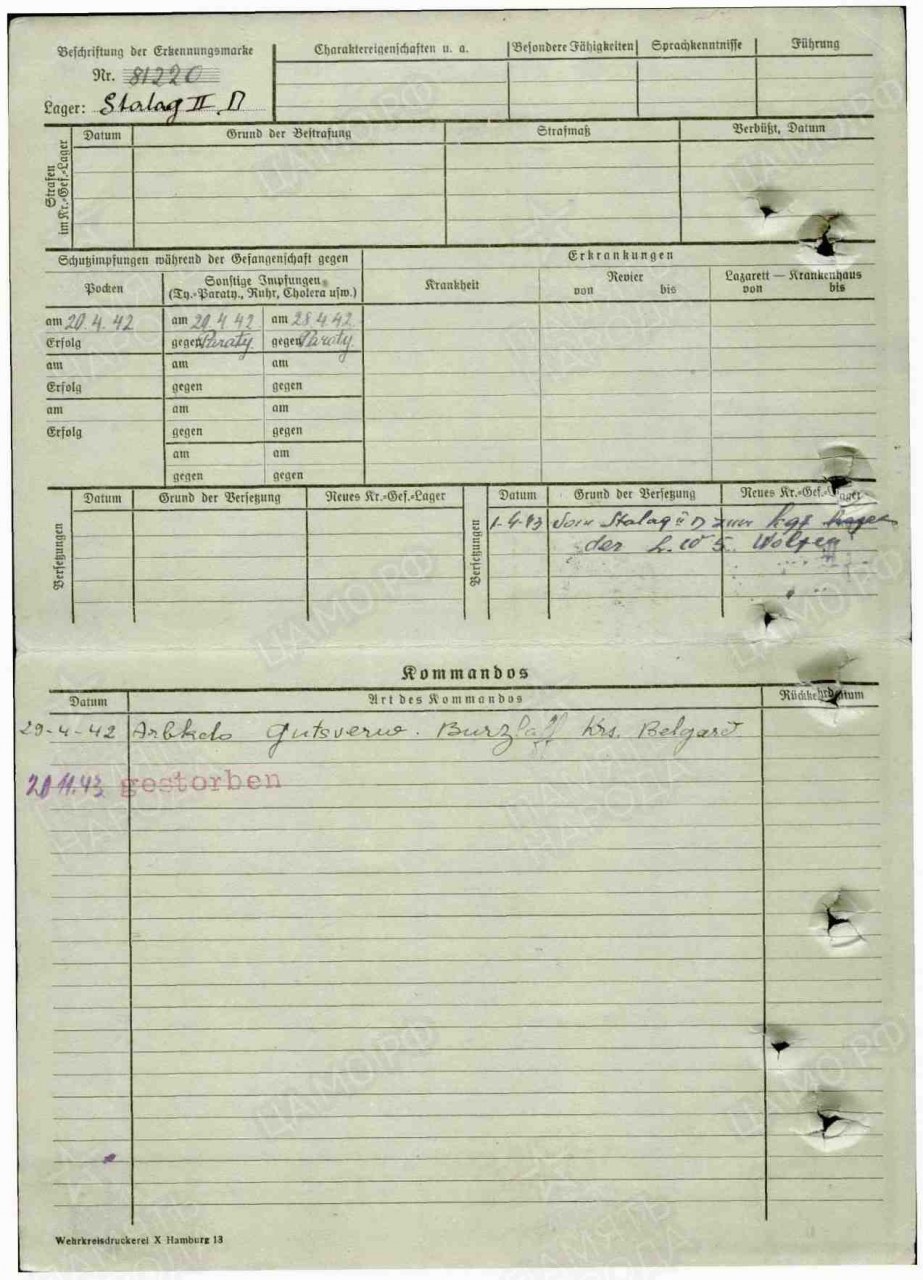 Beschriftung der Erkennungsmarke
Nr. 81220
Lager: Stalag II D
Charaktereigenschaften u. a.
Besondere Fähigkeiten
Sprachkenntnisse
Führung
Strafen im Kr.-Gef.-Lager
Datum
Grund der Bestrafung
Strafmaß
Verbüßt, Datum
Schutzimpfungen während der Gefangenschaft gegen
Erkrankungen
Pocken
Sonstige Impfungen
(Ty.-Paraty., Ruhr, Cholera usw.)
Krankheit
Revier
von bis
Lazarett — Krankenhaus
von bis
am 20. 4. 42 am 20 4 42 am 28 4 42
Erfolg gegen Paraty. gegen Paraty.
am am am
Erfolg gegen gegen
am am am
Erfolg gegen gegen
am am
gegen gegen
Versetzungen
Datum Grund der Versetzung Neues Kr.-Gef.-Lager
Versetzungen
Datum Grund der Versetzung Neues Kr.-Gef.-Lager
1-4-43 Vom Stalag II D zum kgf
der L. W 5
Kommandos
Datum Art des Kommandos Rückkehrdatum
29-4-42 Arbkdo Gutsverw. Burzlaff Krs. Belgard
20.11.43 gestorben
Wehrkreisdruckerei X Hamburg 13
ЦАМО.РФ
ПАМЯТЬ НАРОДА